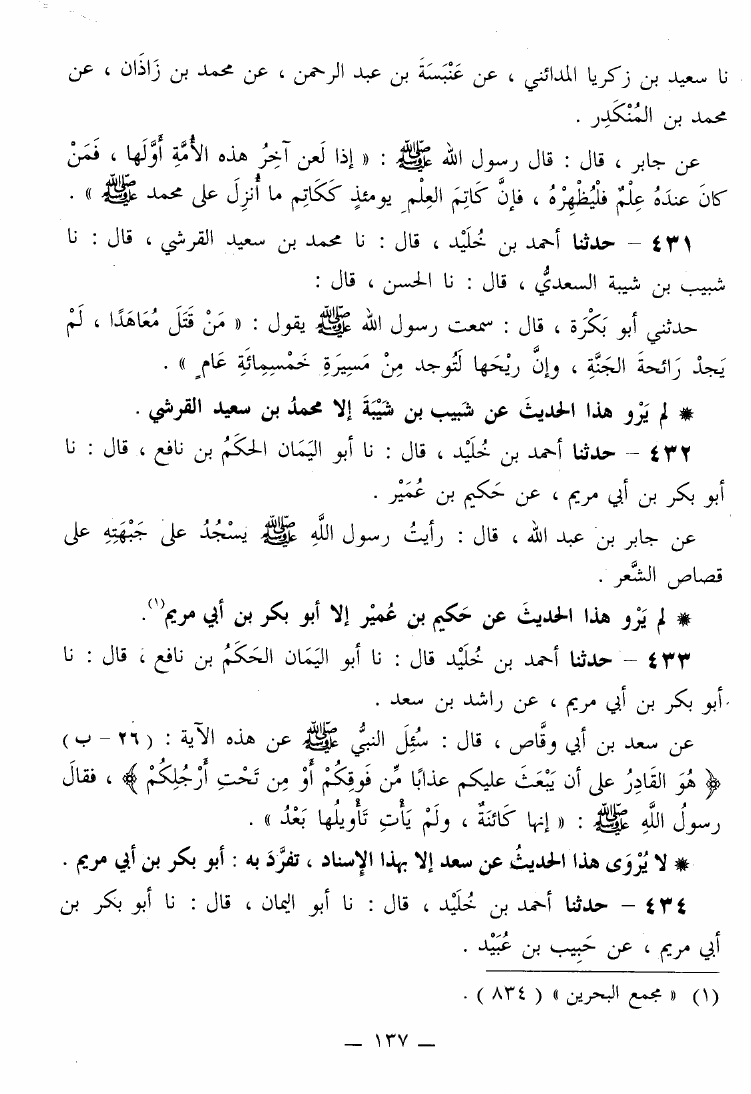 نا سعيد بن زكريا المدائني ، عن عَنْبَسَةَ بن عبد الرحمن ، عن محمد بن زَاذَان ، عن
محمد بن المُنْكَدِر .
عن جابر ، قال : قال رسول الله ﷺ : « إذا لَعن آخِرُ هذه الأُمَّةِ أَوَّلَها ، فَمَنْ
كانَ عندَهُ عِلْمٌ فَلْيُظْهِرْهُ ، فإنَّ كَاتِمَ العِلْمِ يومئذٍ كَكَاتِم ما أُنزِلَ على محمد ﷺ » .
٤٣١ – حدثنا أحمد بن خُلَيْد ، قال : نا محمد بن سعيد القرشي ، قال : نا
شبيب بن شيبة السعديُّ ، قال : نا الحسن ، قال :
حدثني أبو بَكْرَة ، قال : سمعت رسول الله ﷺ يقول : « مَنْ قَتَلَ مُعَاهَدًا ، لَمْ
يَجدْ رَائحةَ الجَنَّةِ ، وإنَّ رِيْحَها لَتُوجد مِنْ مَسِيرَةِ خَمْسِمِائَةِ عَامٍ » .
* لم يَرْو هذا الحديثَ عن شَبيب بن شَيْبَةَ إلا محمدُ بن سعيد القرشي .
٤٣٢ – حدثنا أحمد بن خُلَيْد ، قال : نا أبو اليَمَان الحَكَمُ بن نافع ، قال : نا
أبو بكر بن أبي مريم ، عن حَكيم بن عُمَيْر .
عن جابر بن عبد الله ، قال : رأيتُ رسول اللَّهِ ﷺ يسْجُدُ على جَبْهَتِهِ على
قصاص الشَّعر .
* لم يَرْو هذا الحديثَ عن حَكيم بن عُميْر إلا أبو بكر بن أبي مريم(١).
٤٣٣ – حدثنا أحمد بن خُلَيْد قال : نا أبو اليَمَان الحَكَمُ بن نافع ، قال : نا
أبو بكر بن أبي مريم ، عن راشد بن سعد .
عن سعد بن أبي وقَّاص ، قال : سُئِلَ النبيُّ ﷺ عن هذه الآية : ( ٢٦ – ب )
﴿ هُوَ القَادِرُ على أن يَبْعَثَ عليكم عذابًا مِّن فَوقِكُمْ أَوْ مِن تَحْتِ أَرْجُلِكُمْ ﴾ ، فقالَ
رسولُ اللَّهِ ﷺ : « إنها كَائنَةٌ ، ولَمْ يَأْتِ تَأْويلُها بَعْدُ » .
* لا يُرْوَى هذا الحديثُ عن سعد إلا بهذا الإسناد ، تفرَّدَ به : أبو بكر بن أبي مريم .
٤٣٤ – حدثنا أحمد بن خُلَيْد ، قال : نا أبو اليمان ، قال : نا أبو بكر بن
أبي مريم ، عن حَبِيب بن عُبَيْد .
(١) « مجمع البحرين » ( ٨٣٤ ) .
— ١٣٧ —